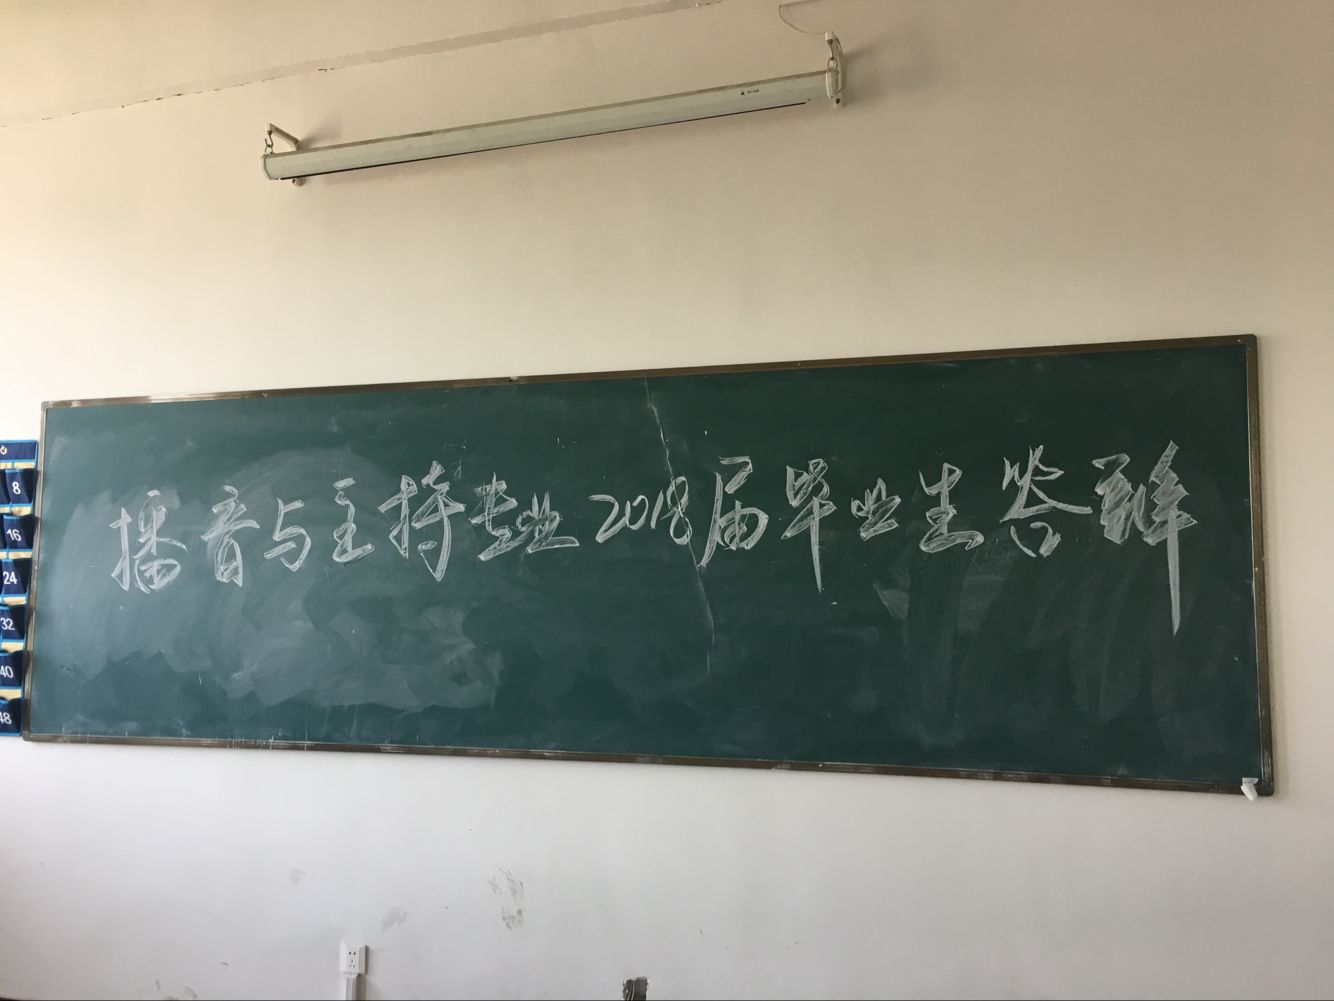 播音与主持专业2018届毕业生答辩
8
16
24
32
40
48